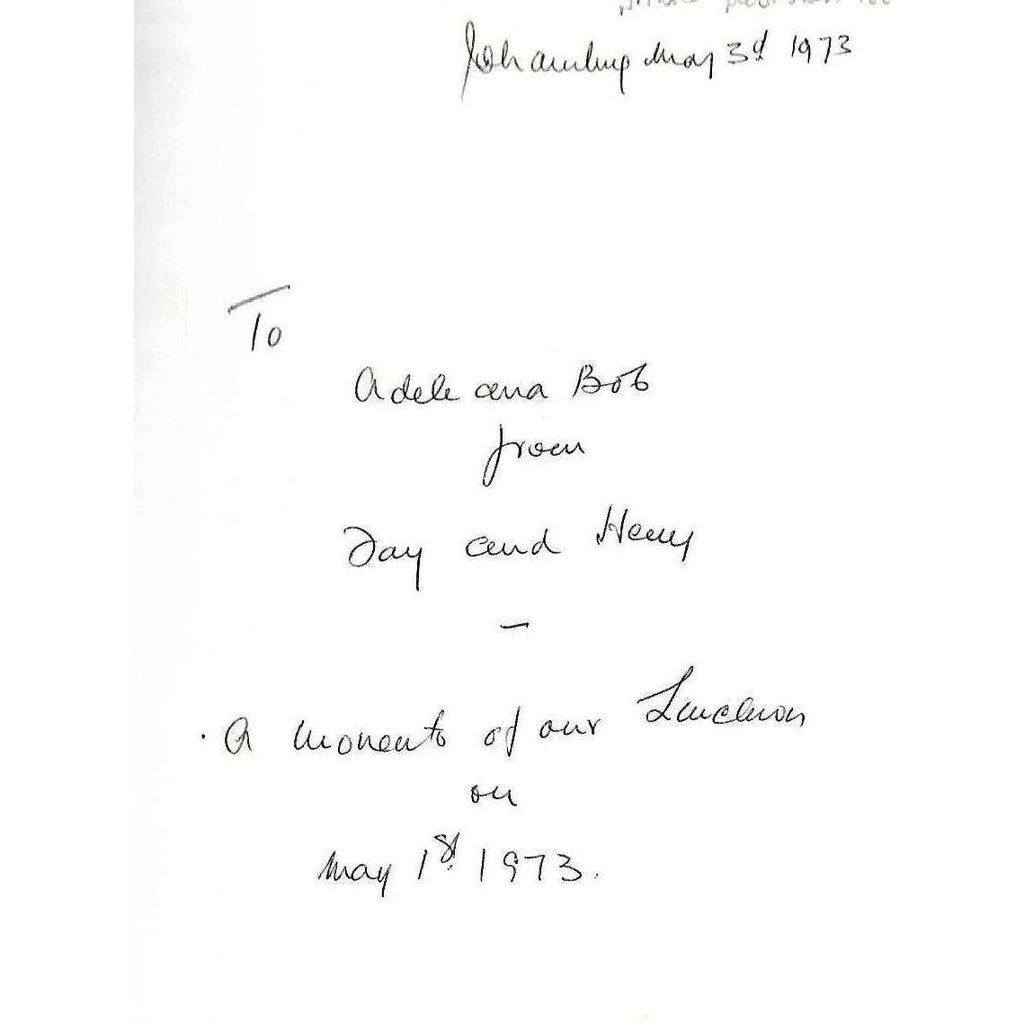 Johannburg May 3d 1973
To
Adele and Bob
from
Jay and Henry
—
A momento of our Luncheon
on
May 1st 1973.